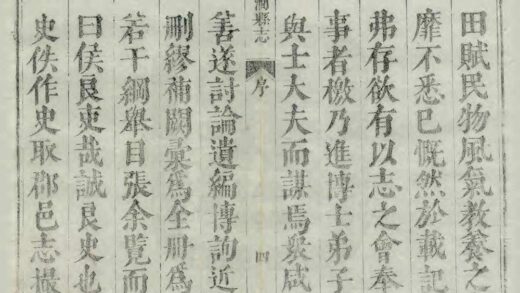 田賦民物風氣教養之
靡不悉已慨然於載記
弗存欲有以志之會奉
事者檄乃進博士弟子
與士大夫而謀焉衆咸
縣志
序
四
善遂討論遺編博詢近
刪繆補闕彙爲全冊爲
若干綱舉目張余覽而
曰侯良吏哉誠良史也
史佚作史取郡邑志撮